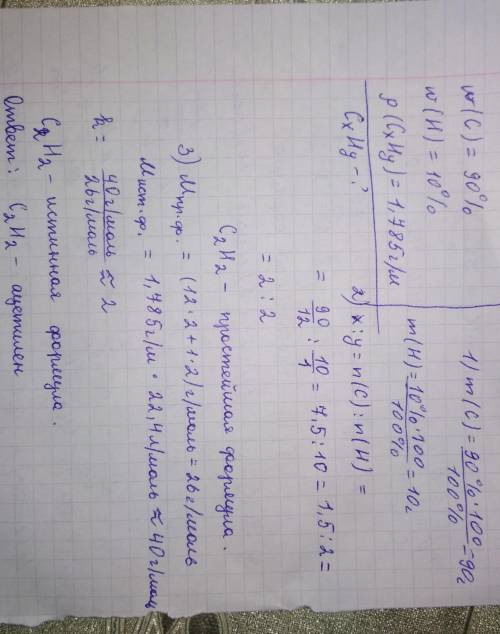 w(C) = 90%
w(H) = 10%
ρ(CxHy) = 1,785 г/л
CxHy - ?
1) m(C) = 90% · 100 / 100% = 90г
m(H) = 10% · 100 / 100% = 10г
2) x : y = n(C) : n(H) =
= 90/12 : 10/1 = 7.5 : 10 = 1,5 : 2 =
= 2 : 2
C₂H₂ - простейшая формула.
3) Mпр.ф. = (12·2 + 1·2) г/моль = 26 г/моль
Mист.ф. = 1,785 г/л · 22,4 л/моль ≈ 40 г/моль
k = 40 г/моль / 26 г/моль ≈ 2
C₂H₂ - истинная формула.
Ответ: C₂H₂ - ацетилен